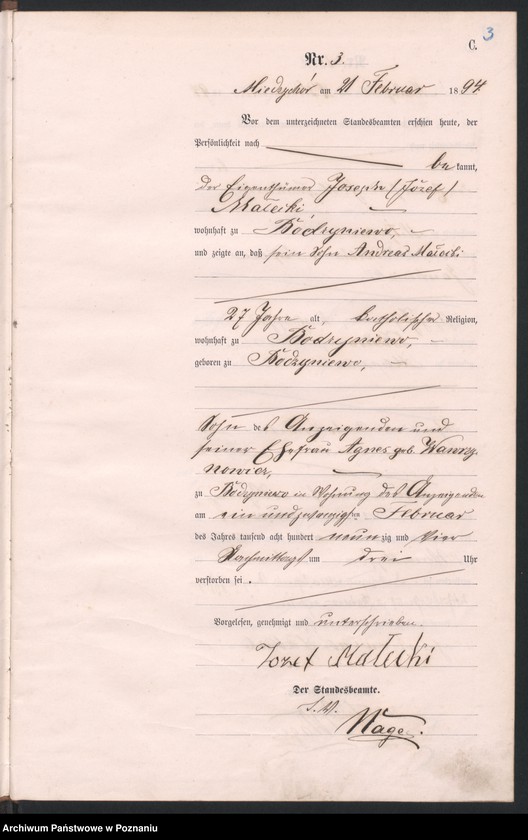 3
C.
Nr. 3.
Miedzychód am 21 Februar 1894.
Vor dem unterzeichneten Standesbeamten erschien heute, der
Persönlichkeit nach
be kannt,
der Eigenthümer Joseph /Józef/
Małecki
wohnhaft zu Bodzyniewo,
und zeigte an, daß sein Sohn Andreas Małecki
27 Jahre alt, katholischer Religion,
wohnhaft zu Bodzyniewo,
geboren zu Bodzyniewo,
Sohn des Anzeigenden und
seiner Ehefrau Agnes geb. Wawrzy-
nowicz,
zu Bodzyniewo in Wohnung des Anzeigenden
am ein und zwanzigsten Februar
des Jahres tausend acht hundert neunzig und vier
Nachmittags um drei Uhr
verstorben sei.
Vorgelesen, genehmigt und unterschrieben.
Jozef Małecki
Der Standesbeamte.
I. V.
Archiwum Państwowe w Poznaniu